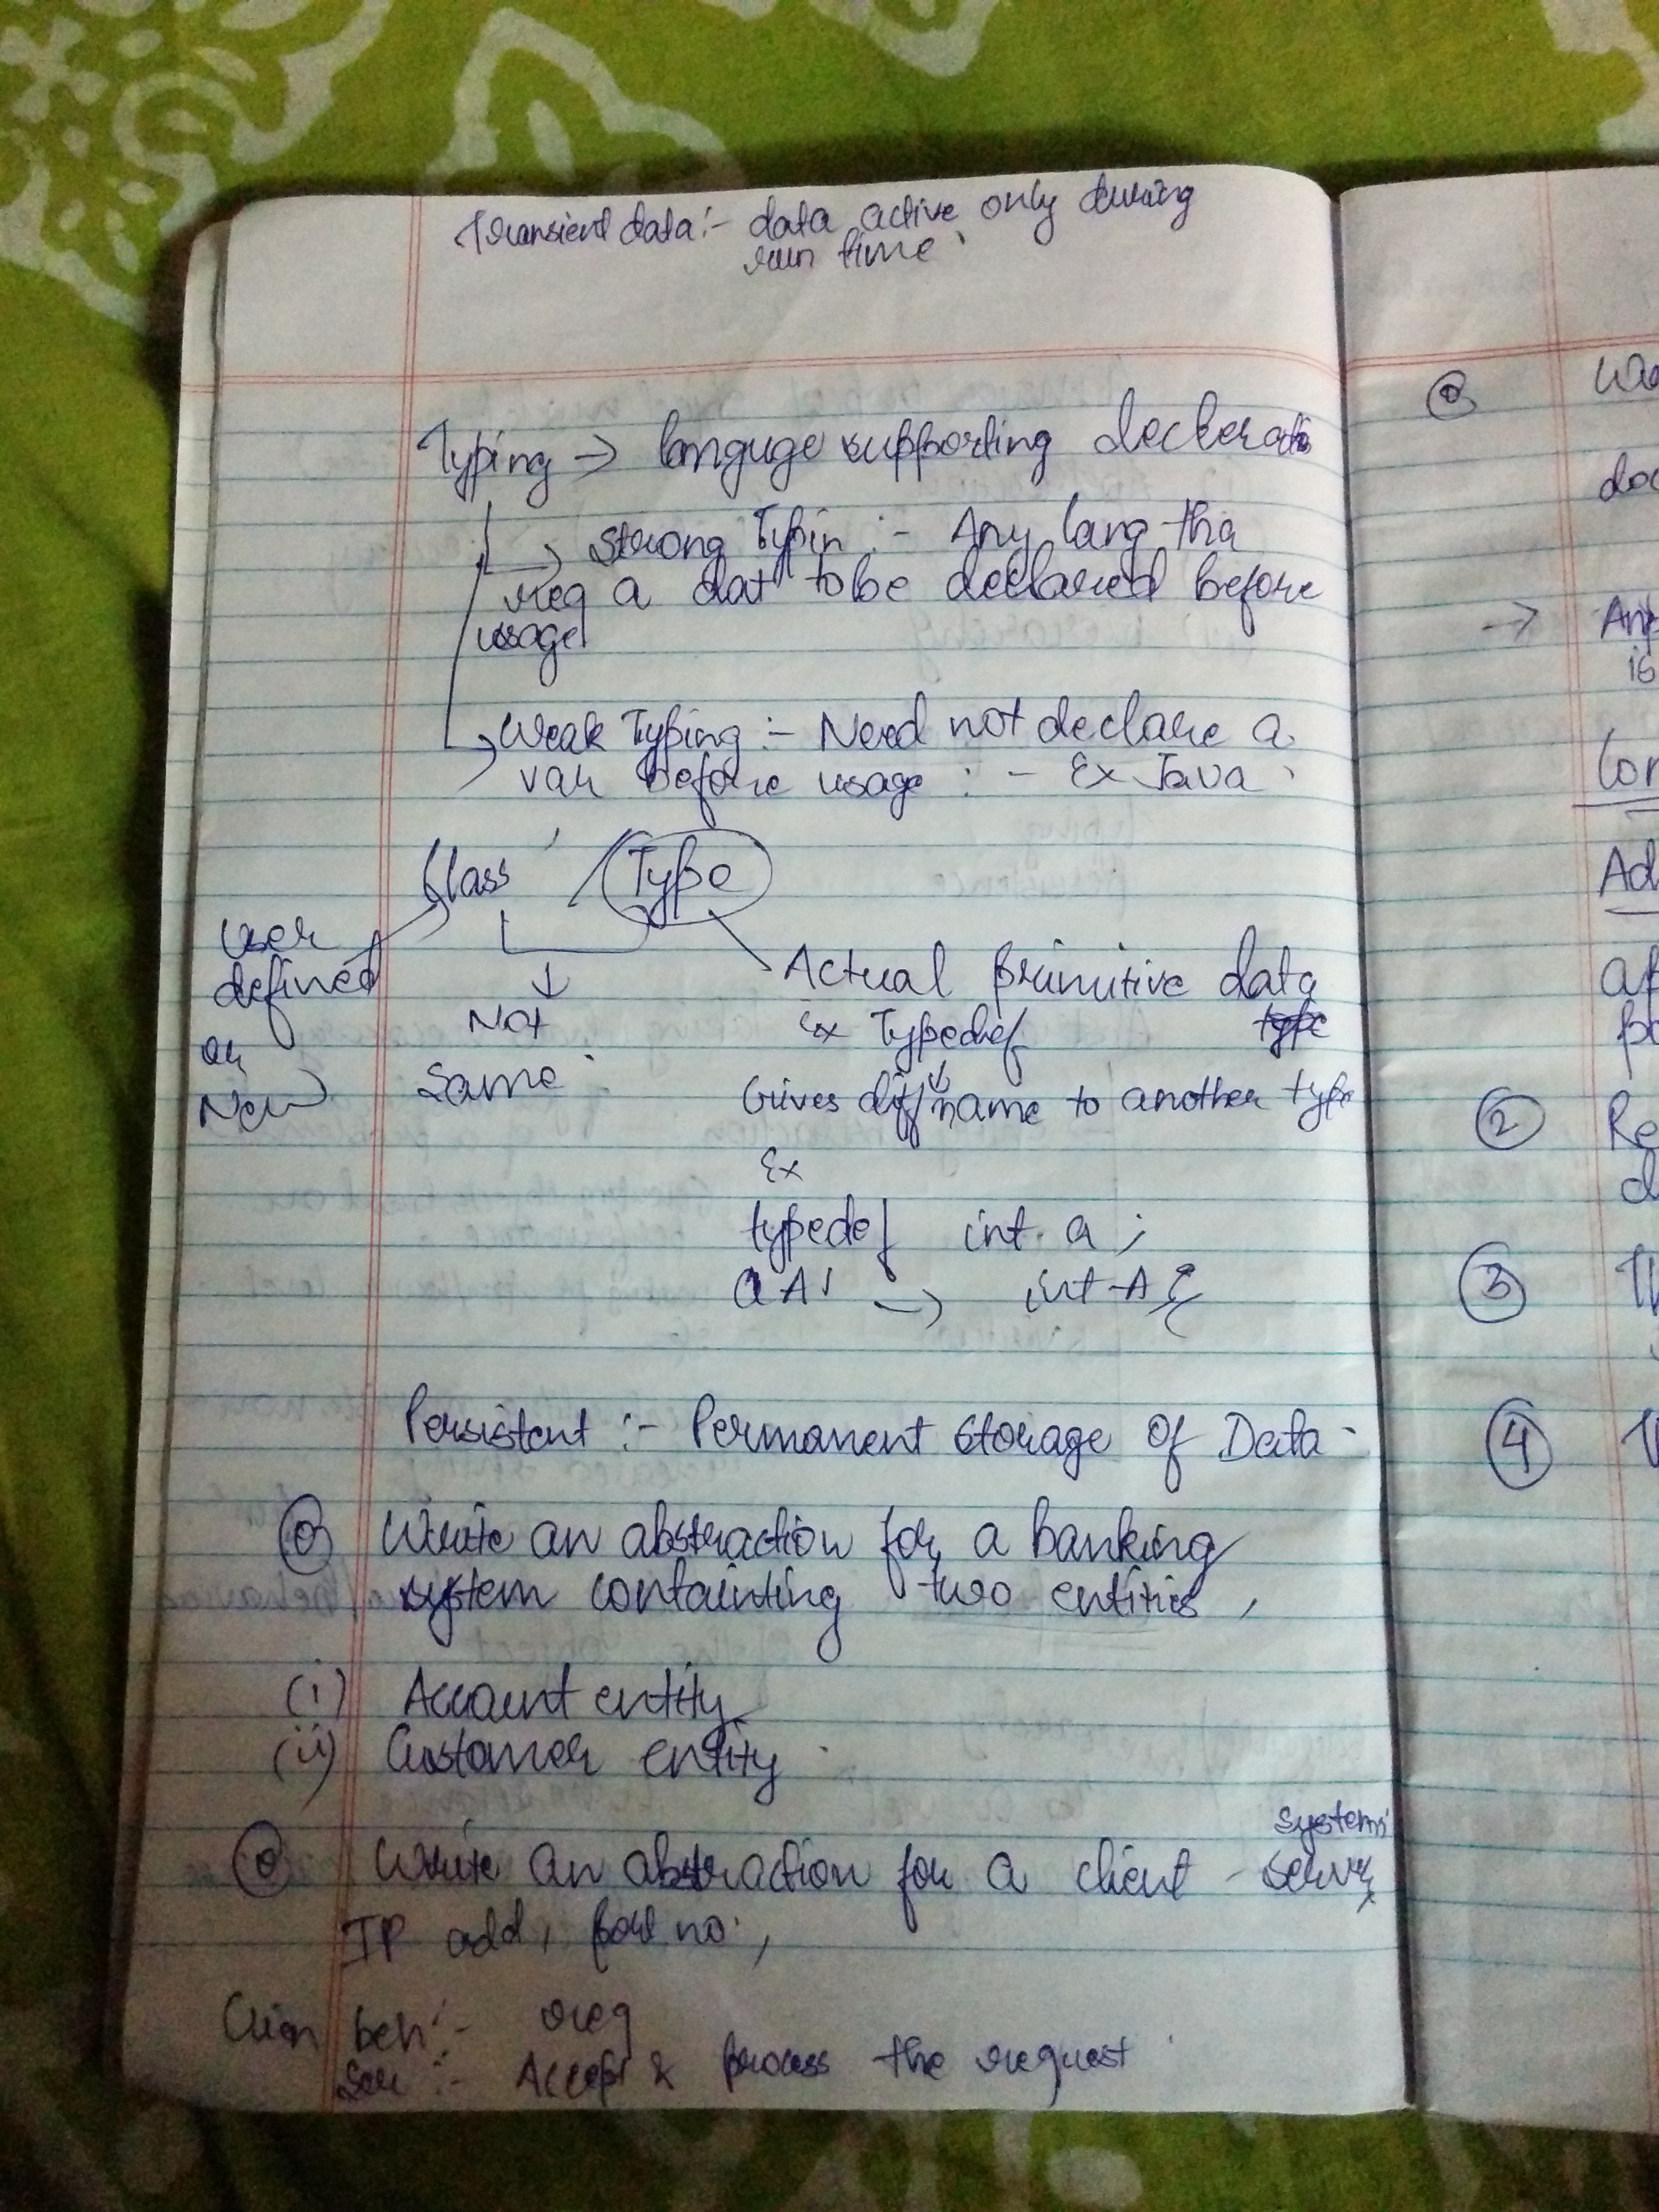 Transient data :- data active only during
run time
Typing → languge supporting declerati
→ Strong Typin :- Any lang tha
req a dat to be declared before
usage
→ Weak Typing :- Need not declare a
var before usage : - Ex Java
Class / Type
User
defined
or
New
Not
Same
Actual primitive data
type
Ex Typedef
Gives diff name to another type
Ex
typedef int a ;
a A ; → int A ;
Persistent :- Permanent Storage of Data -
Q Write an abstraction for a banking
system containting two entities ,
(i) Account entity
(ii) Customer entity
Q Write an abstraction for a client - server
systems
IP add, port no. ,
Clien beh :- req
Ser :- Accept & process the request
Q
doc
→
is
Ad
2 Re
d
3
4